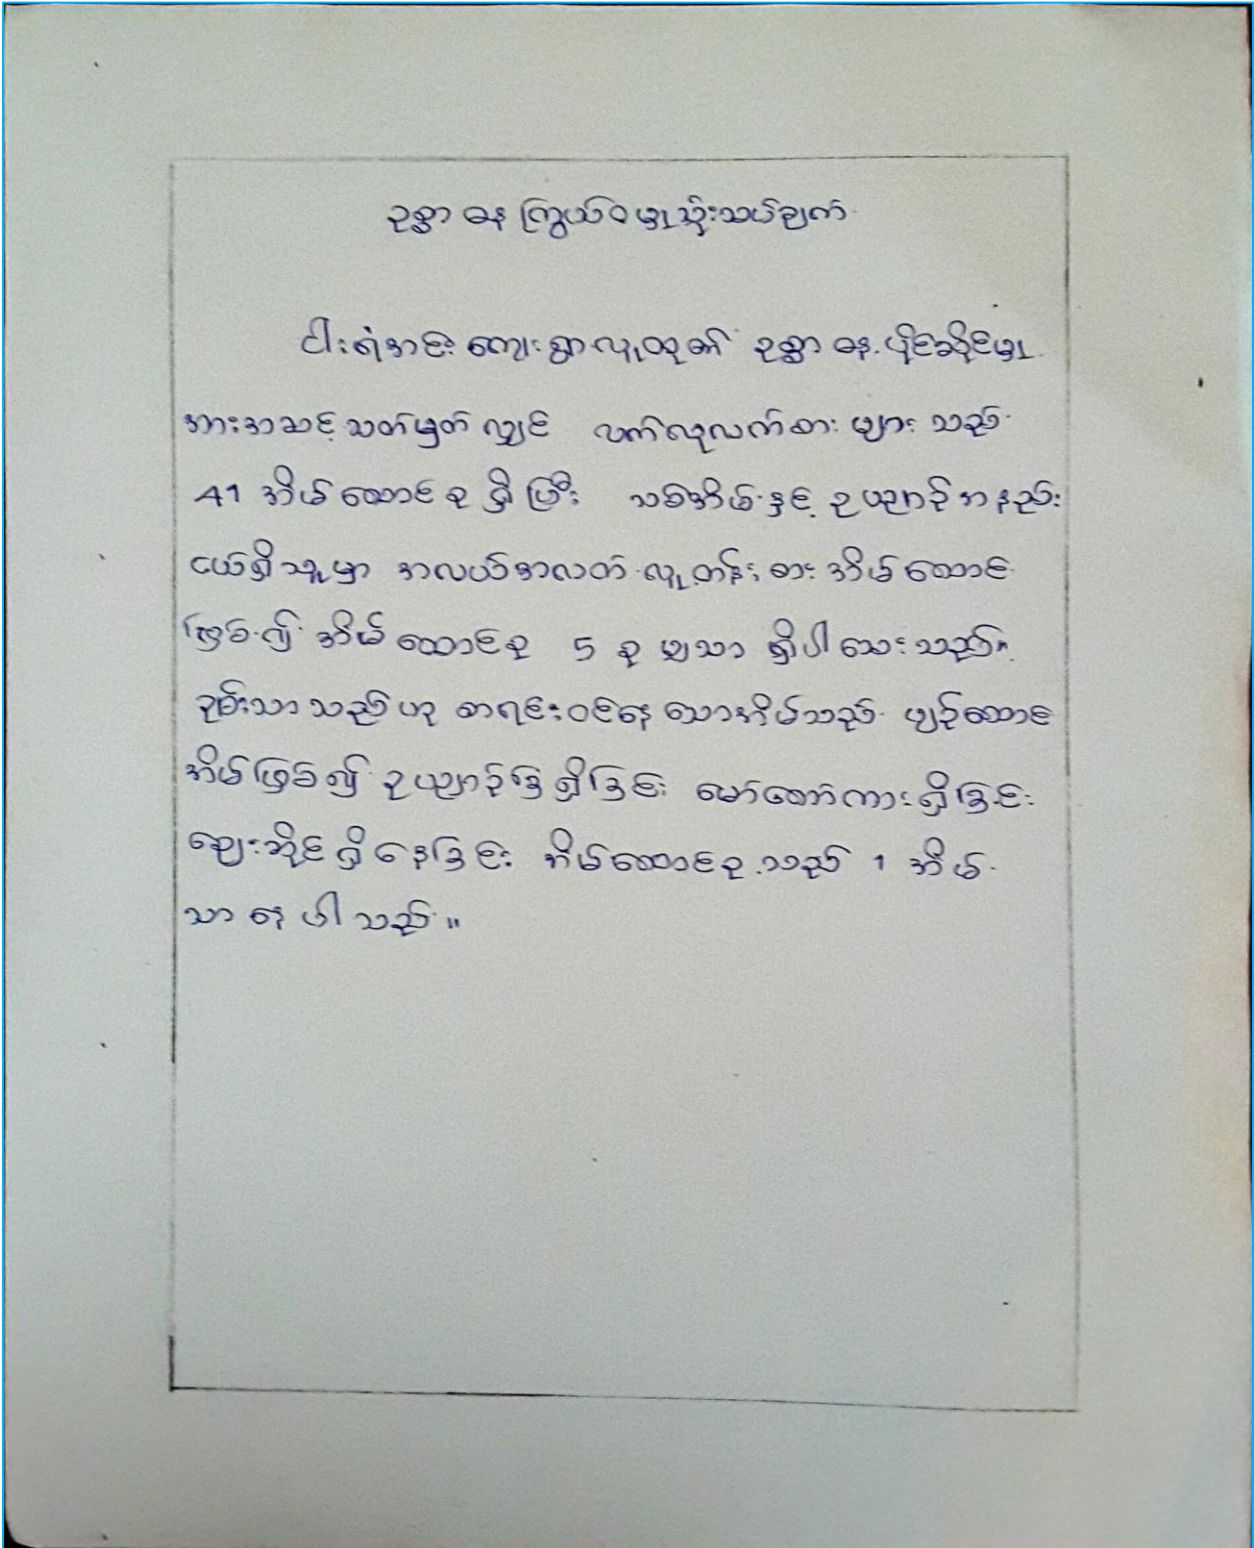 ဥစ္စာဓန ကြွယ်ဝမှုသုံးသပ်ချက်
ငါးရံအင်း ကျေးရွာလူထု၏ ဥစ္စာဓန ပိုင်ဆိုင်မှု
အားအဆင့်သတ်မှတ်လျှင် လက်လုပ်လက်စား များ သည်
41 အိမ်ထောင်စု ရှိပြီး သစ်အိမ်နှင့် ဥယျာဉ်အနည်း
ငယ်ရှိသူမှာ အလယ်အလတ် လူတန်းစား အိမ်ထောင်
ဖြစ်၍ အိမ်ထောင်စု 5 စု မျှသာ ရှိပါသေးသည်။
ချမ်းသာသည်ဟု စာရင်းဝင်နေသောအိမ်သည် ပျဉ်ထောင်
အိမ်ဖြစ်၍ ဥယျာဉ်ခြံရှိခြင်း မော်တော်ကားရှိခြင်း
ဈေးဆိုင်ရှိနေခြင်း အိမ်ထောင်စုသည် 1 အိမ်
သာ နေပါသည်။